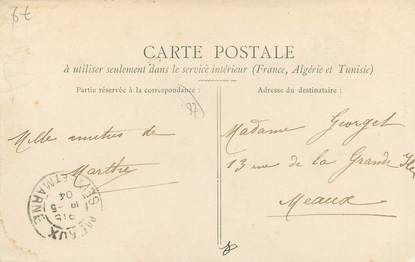 CARTE POSTALE
à utiliser seulement dans le service intérieur (France, Algérie et Tunisie)
Partie réservée à la correspondance :
Adresse du destinataire :
Mille amitiés de
Marthe
Madame Georget
13 rue de la Grande
Meaux
MEAUX
SEINE ET MARNE
04